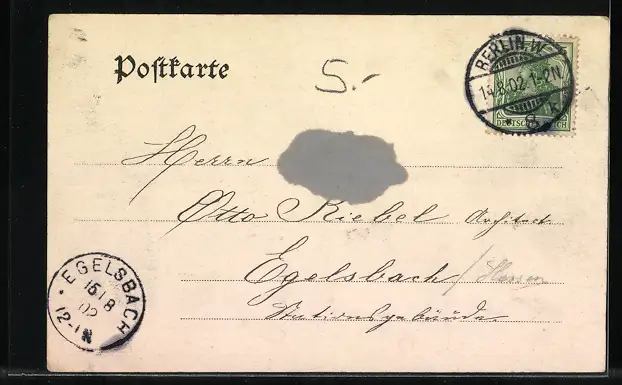 Postkarte
5.-
BERLIN.W.
14.8.02.1-2N
* 8 k
DEUTSCHES REICH
Herrn
Otto Riebel Architect
Egelsbach / Hessen
Stationsgebäude
EGELSBACH
15/8
02
12-1N